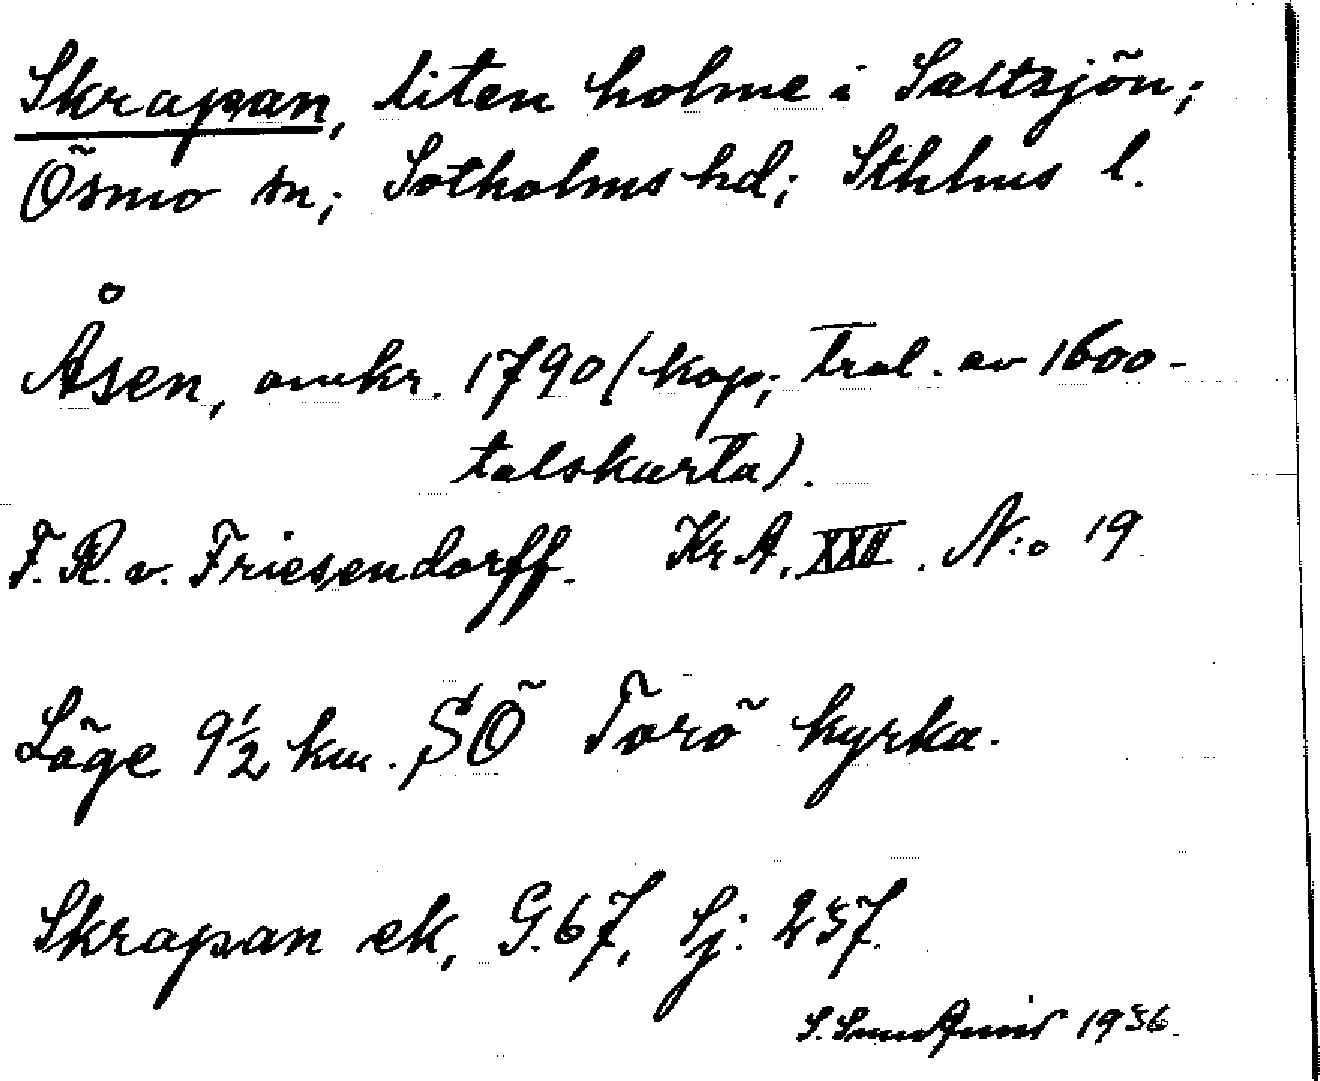 Skrapan, liten holme i Saltsjön;
Ösmo sn; Sotholms hd; Sthlms l.
Åsen, omkr. 1790 (kop; trol. av 1600-
talskarta).
F. R. v. Friesendorff. Kr. A. XXII. N:o 19
Läge 9½ km. SÖ Torö kyrka.
Skrapan ek, G. 67, Sj: 257.
S. 1936.